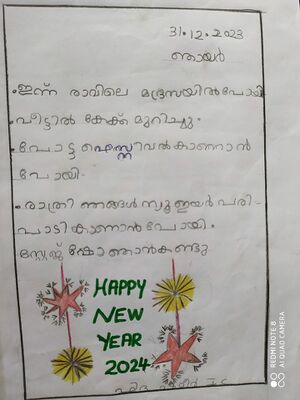 31.12.2023
ഞായർ
• ഇന്ന് രാവിലെ മദ്രസയിൽപോയി
വീട്ടിൽ കേക്ക് മുറിച്ചു.
പോട്ട ഫെസ്റ്റിവൽകാണാൻ
പോയി.
• രാത്രി ഞങ്ങൾ ന്യൂഇയർ പരി-
പാടികാണാൻ പോയി.
സ്റ്റേജ് ഷോ ഞാൻകണ്ടു
HAPPY
NEW
YEAR
2024
REDMI NOTE 8
AI QUAD CAMERA